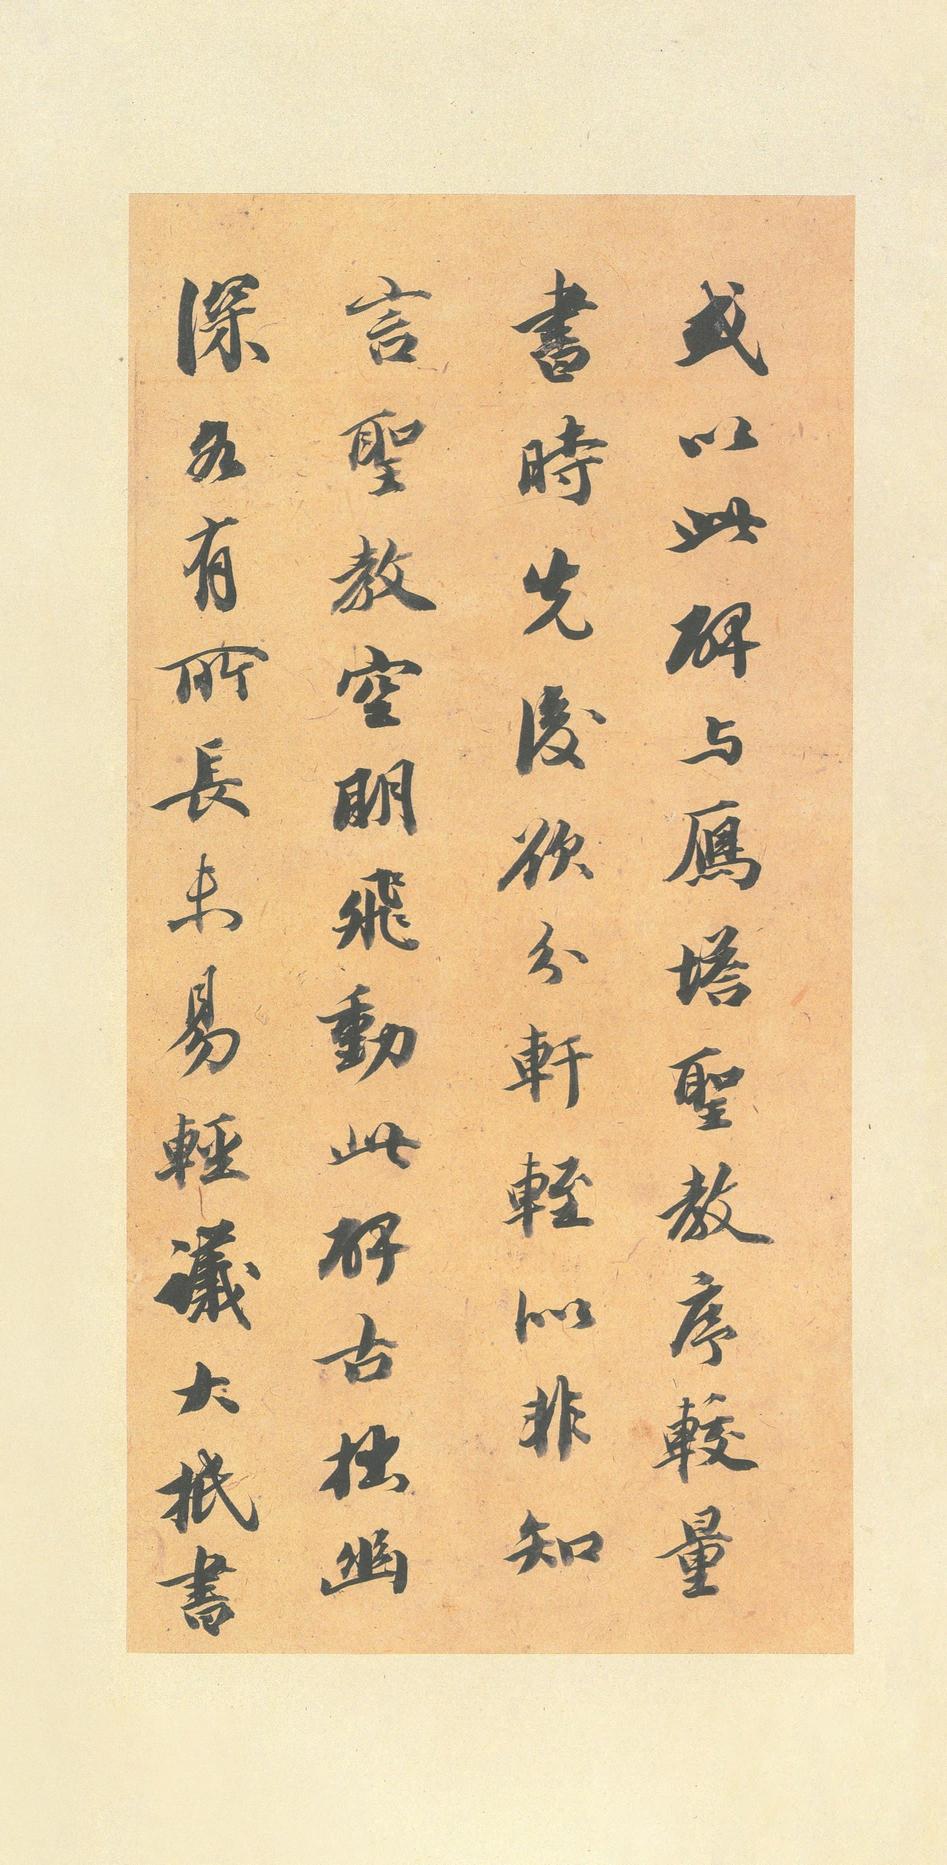 或以此碑与雁塔聖教序較量
書時先後欲分軒輊似非知
言聖教空明飛動此碑古拙幽
深各有所長未易輕議大抵書